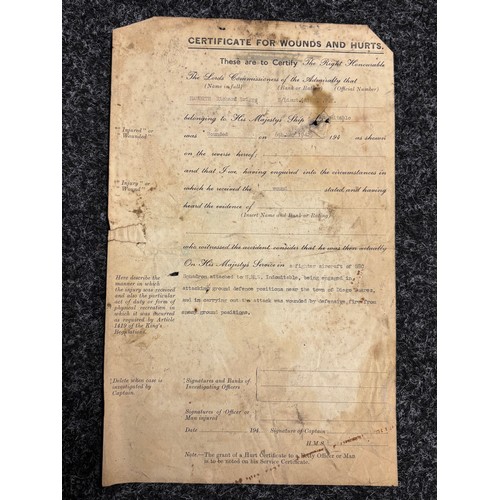 CERTIFICATE FOR WOUNDS AND HURTS.
These are to Certify The Right Honourable
The Lords Commissioners of the Admiralty that
(Name in full) (Rank or Rating) (Official Number)
belonging to His Majesty's Ship
"Injured" or
Wounded
was on 194 as shewn
on the reverse hereof;
and that I, having enquired into the circumstances in
"Injury" or
Wound
which he received the wound stated, and having
heard the evidence of
(Insert Name and Rank or Rating)
who witnessed the accident, consider that he was then actually
On His Majesty's Service in a fighter aircraft of 880
Squadron attached to H.M.S. Indomitable, being engaged in
attacking ground defence positions near the town of Diego Suarez,
and in carrying out the attack was wounded by defensive fire from
ground positions.
Here describe the
manner in which
the injury was received
and also the particular
act of duty or form of
physical recreation in
which it was incurred
as required by Article
1419 of the King's
Regulations.
Delete when case is
investigated by
Captain
Signatures and Ranks of
Investigating Officers
Signature of Officer or
Man injured
Date 194 Signature of Captain
H.M.S.
Note:—The grant of a Hurt Certificate to a Petty Officer or Man
is to be noted on his Service Certificate.